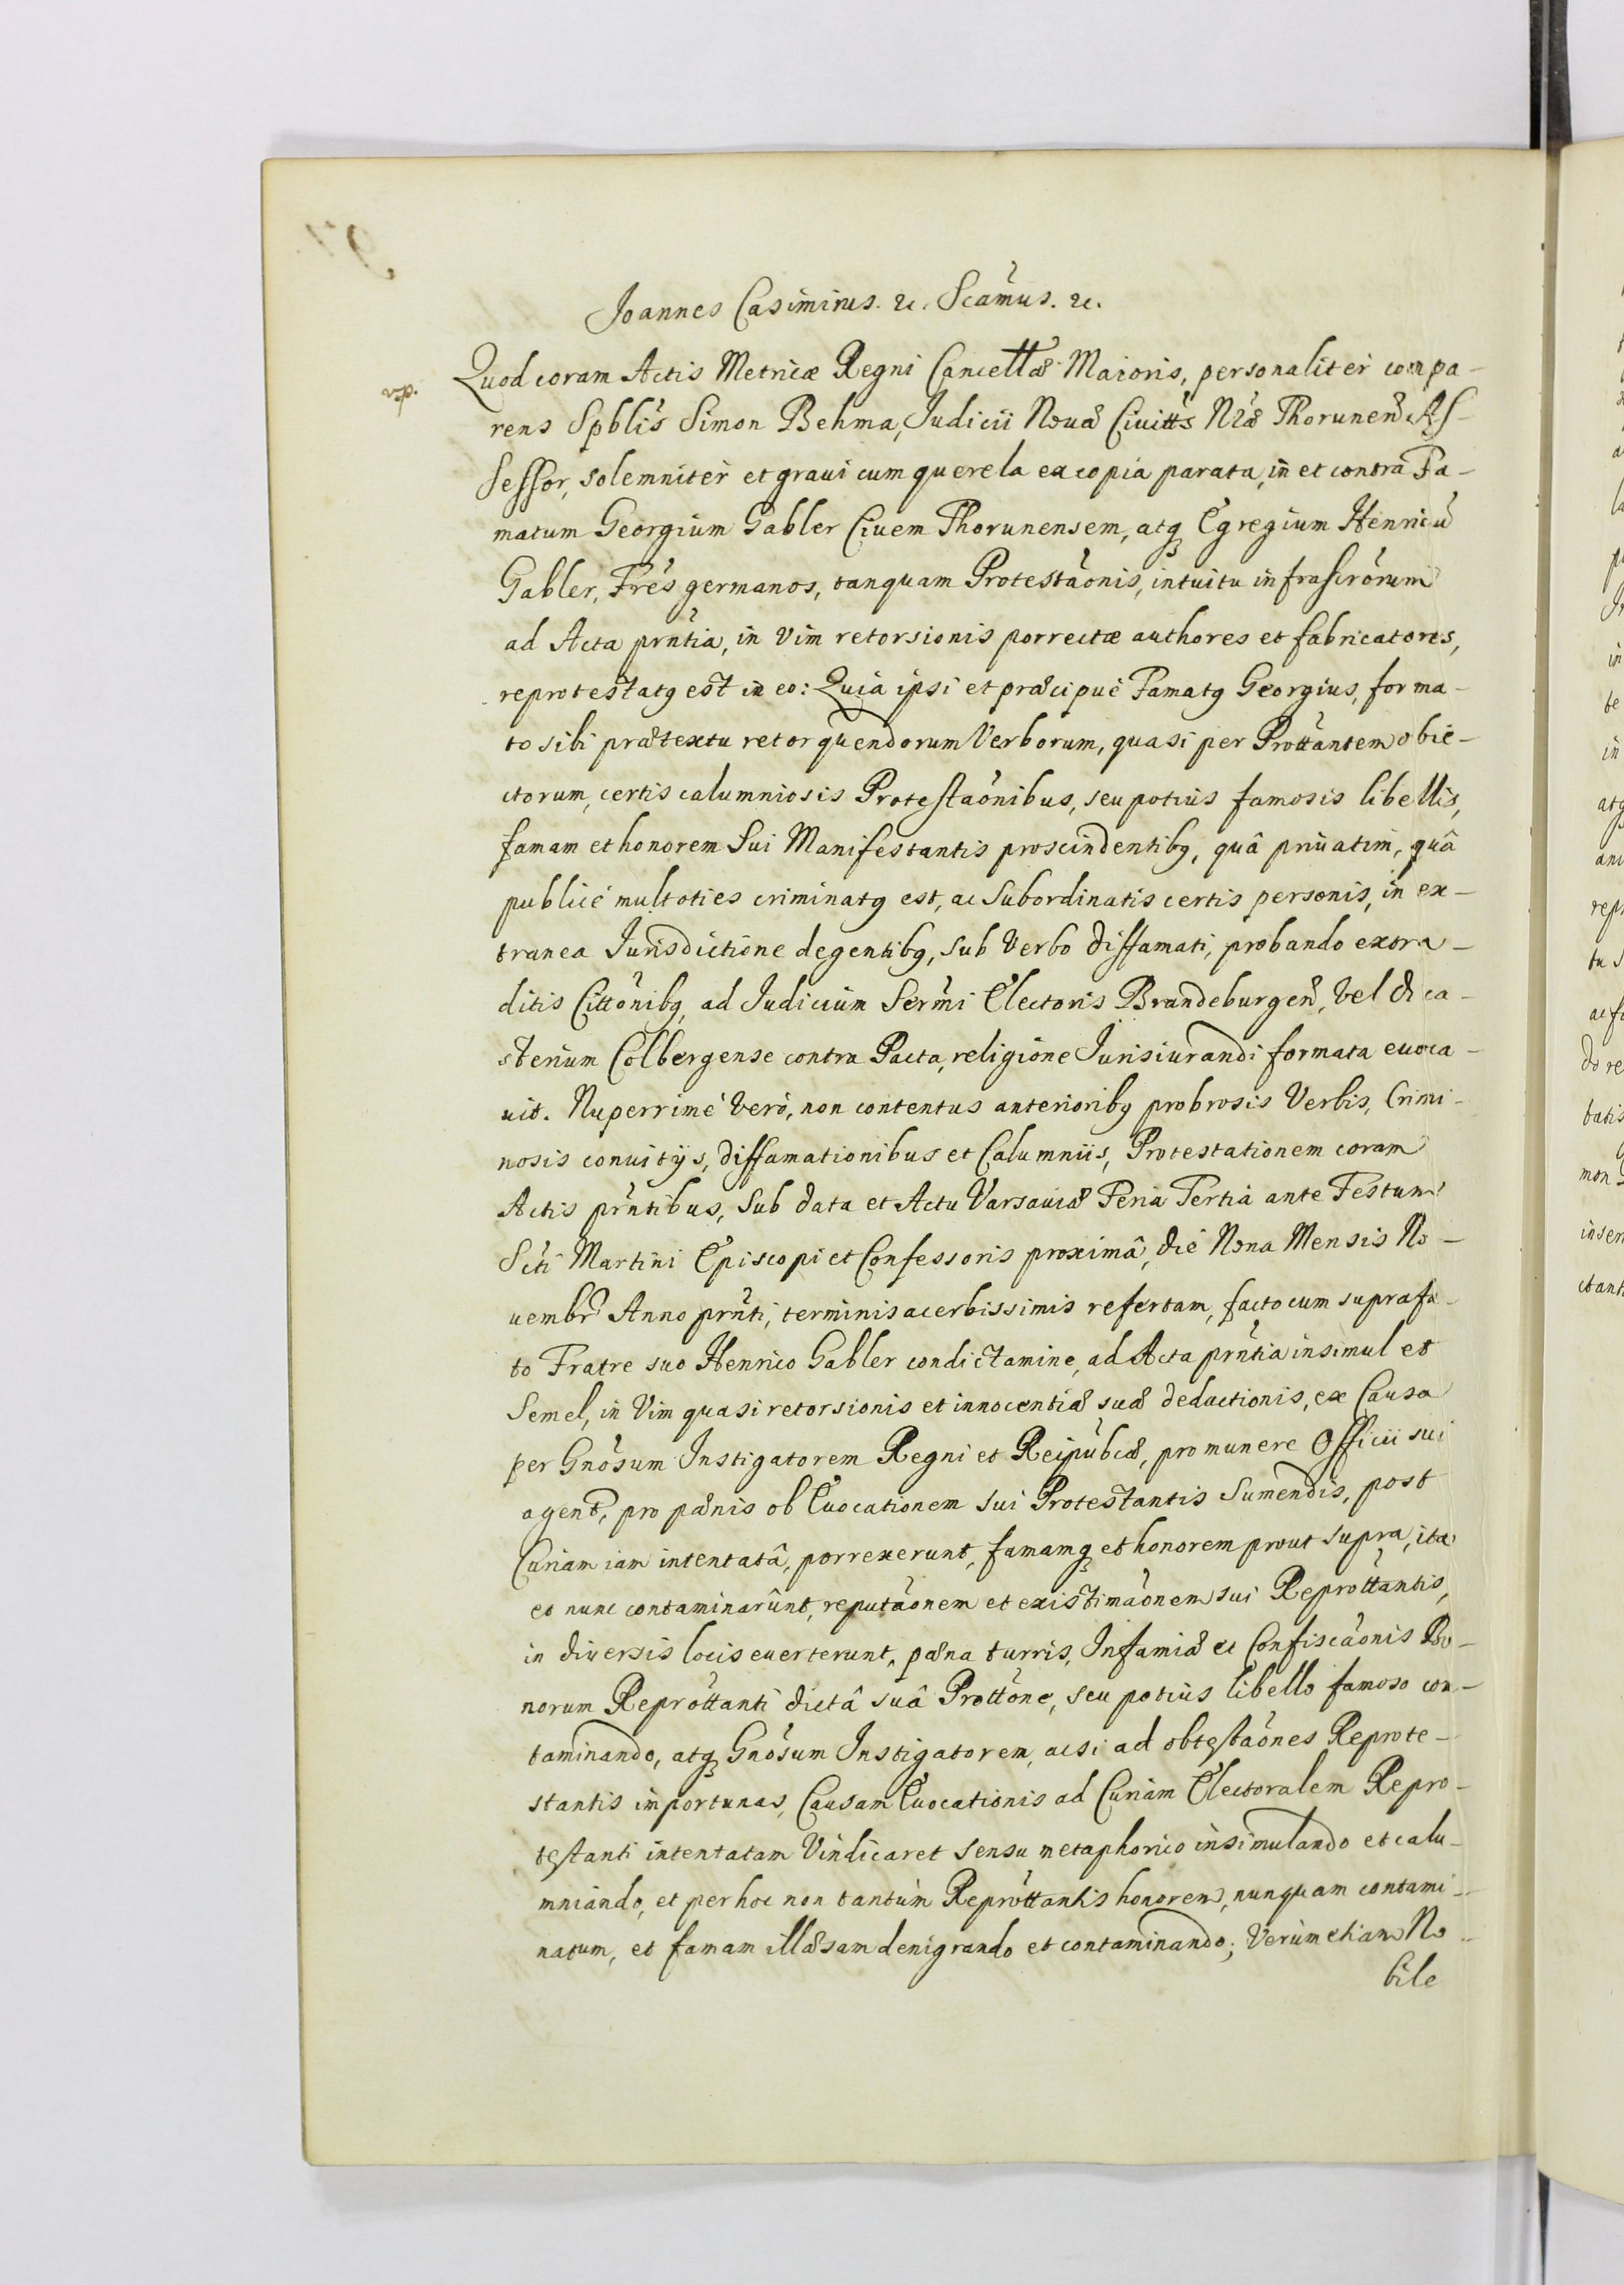 Joannes Casimirus. &c. Scãmus. &c.
Quod coram Actis Metricæ Regni Cancellæ Maioris, personaliter compa-
rens Spblis Simon Behma, Judicii Nouæ Ciuittis Nræ Thorunen As-
sessor, solemniter et graui cum querela ex copia parata, in et contra Fa-
matum Georgium Gabler Ciuem Thorunensem, atq Egregium Henricũ
Gabler, Fres germanos, tanquam Protestãonis, intuitu infrascrorum
ad Acta prntia, in vim retorsionis porrectæ authores et fabricatores,
reprotestatq est in eo: Quia ipsi et præcipuè Famatq Georgius, forma-
to sibi prætextu retorquendorum Verborum, quasi per Prottantem obie-
ctorum, certis calumniosis Protestaõnibus, seu potiùs famosis libellis,
famam et honorem sui Manifestantis proscindentibq, quâ priuatim, quâ
publicè multoties criminatq est, ac subordinatis certis personis, in ex-
tranea Jurisdictione degentibq, sub verbo diffamati, probando extra-
ditis Cittõnibq, ad Judicium Sermi Electoris Brandeburgen, vel dica-
sterium Colbergense contra Pacta, religione Jurisiurandi formata euoca-
uit. Nuperrimè verò, non contentus anterioribq probrosis Verbis, Crimi-
nosis conuitijs, diffamationibus et Calumniis, Protestationem coram
Actis prntibus, sub data et Actu Varsauiæ Feria Tertia ante Festum
Scti Martini Episcopi et Confessoris proximâ, die Nona Mensis No-
uembr Anno prnti, terminis acerbissimis refertam, facto cum suprafa-
to Fratre suo Henrico Gabler condictamine, ad Acta prntia insimul et
semel, in Vim quasi retorsionis et innocentiæ suæ deductionis, ex Causa
per Gnosum Instigatorem Regni et Reipubcæ, pro munere Officii sui
agent, pro pænis ob Euocationem sui Protestantis sumendis, post
Curiam iam intentatâ, porrexerunt, famamq et honorem prout supra, ita
et nunc contaminarûnt, reputãonem et existimãonem sui Reprottantis,
in diuersis locis euerterunt, pæna turris, Infamiæ et Confiscãonis Bo-
norum Reprottanti dictâ suâ Prottone, seu potiùs libello famoso con-
taminando, atq Gnosum Instigatorem, acsi ad obtestaõnes Reprote-
stantis importunas, Causam Euocationis ad Curiam Electoralem Repro-
testanti intentatam Vindicaret sensu metaphorico insimulando et calu-
mniando, et per hoc non tantùm Reprottantis honorem, nunquam contami-
natum, et famam illæsam denigrando et contaminando; Verùm etiam No-
bile